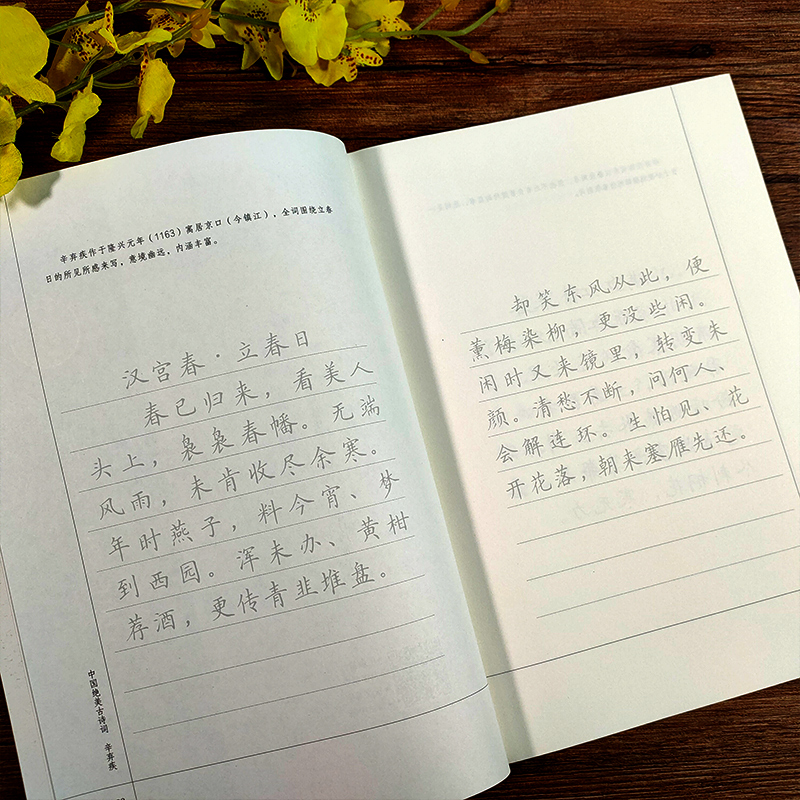 辛弃疾作于隆兴元年（1163）寓居京口（今镇江），全词围绕立春
日的所见所感来写，意境幽远，内涵丰富。
汉宫春·立春日
春已归来，看美人
头上，袅袅春幡。无端
风雨，未肯收尽余寒。
年时燕子，料今宵、梦
到西园。浑未办、黄柑
荐酒，更传青韭堆盘。
中国绝美古诗词 辛弃疾
却笑东风从此，便
薰梅染柳，更没些闲。
闲时又来镜里，转变朱
颜。清愁不断，问何人、
会解连环。生怕见、花
开花落，朝来塞雁先还。